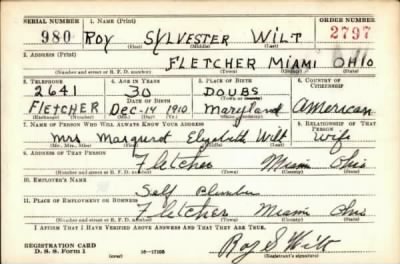 SERIAL NUMBER 1. NAME (Print) ORDER NUMBER
980 ROY SYLVESTER WILT 2797
(First) (Middle) (Last)
2. ADDRESS (Print)
FLETCHER MIAMI OHIO
(Number and street or R. F. D. number) (Town) (County) (State)
3. TELEPHONE 4. AGE IN YEARS 5. PLACE OF BIRTH 6. COUNTRY OF CITIZENSHIP
2641 30 DOUBS
DATE OF BIRTH (Town or county)
FLETCHER Dec-14 1910 Maryland American
(Exchange) (Number) (Mo.) (Day) (Yr.) (State or country)
7. NAME OF PERSON WHO WILL ALWAYS KNOW YOUR ADDRESS 8. RELATIONSHIP OF THAT PERSON
Mrs Margaret Elizabeth Wilt Wife
(Mr., Mrs., Miss) (First) (Middle) (Last)
9. ADDRESS OF THAT PERSON
Fletcher Miami Ohio
(Number and street or R. F. D. number) (Town) (County) (State)
10. EMPLOYER'S NAME
Self Plumber
11. PLACE OF EMPLOYMENT OR BUSINESS
Fletcher Miami Ohio
(Number and street or R. F. D. number) (Town) (County) (State)
I AFFIRM THAT I HAVE VERIFIED ABOVE ANSWERS AND THAT THEY ARE TRUE.
REGISTRATION CARD
D. S. S. Form 1 (over) 16-17105 Roy S Wilt
(Registrant's signature)